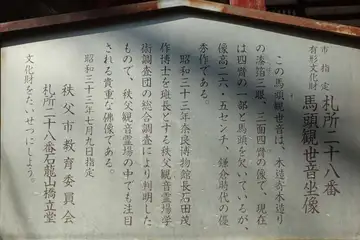 市指定
有形文化財
札所二十八番
馬頭観世音坐像
この馬頭観世音は、木造寄木造り
の漆箔三眼、三面四臂の像で、現在
は四臂の一部と馬頭を欠いているが、
像高二六、五センチ、鎌倉時代の優
秀作である。
昭和三十三年奈良博物館長石田茂
作博士を班長とする秩父観音霊場学
術調査団の総合調査により判明した
もので、秩父観音霊場の中でも注目
される貴重な佛像である。
昭和三十三年七月九日指定
秩父市教育委員会
札所二十八番石龍山橋立堂
文化財をたいせつにしよう。